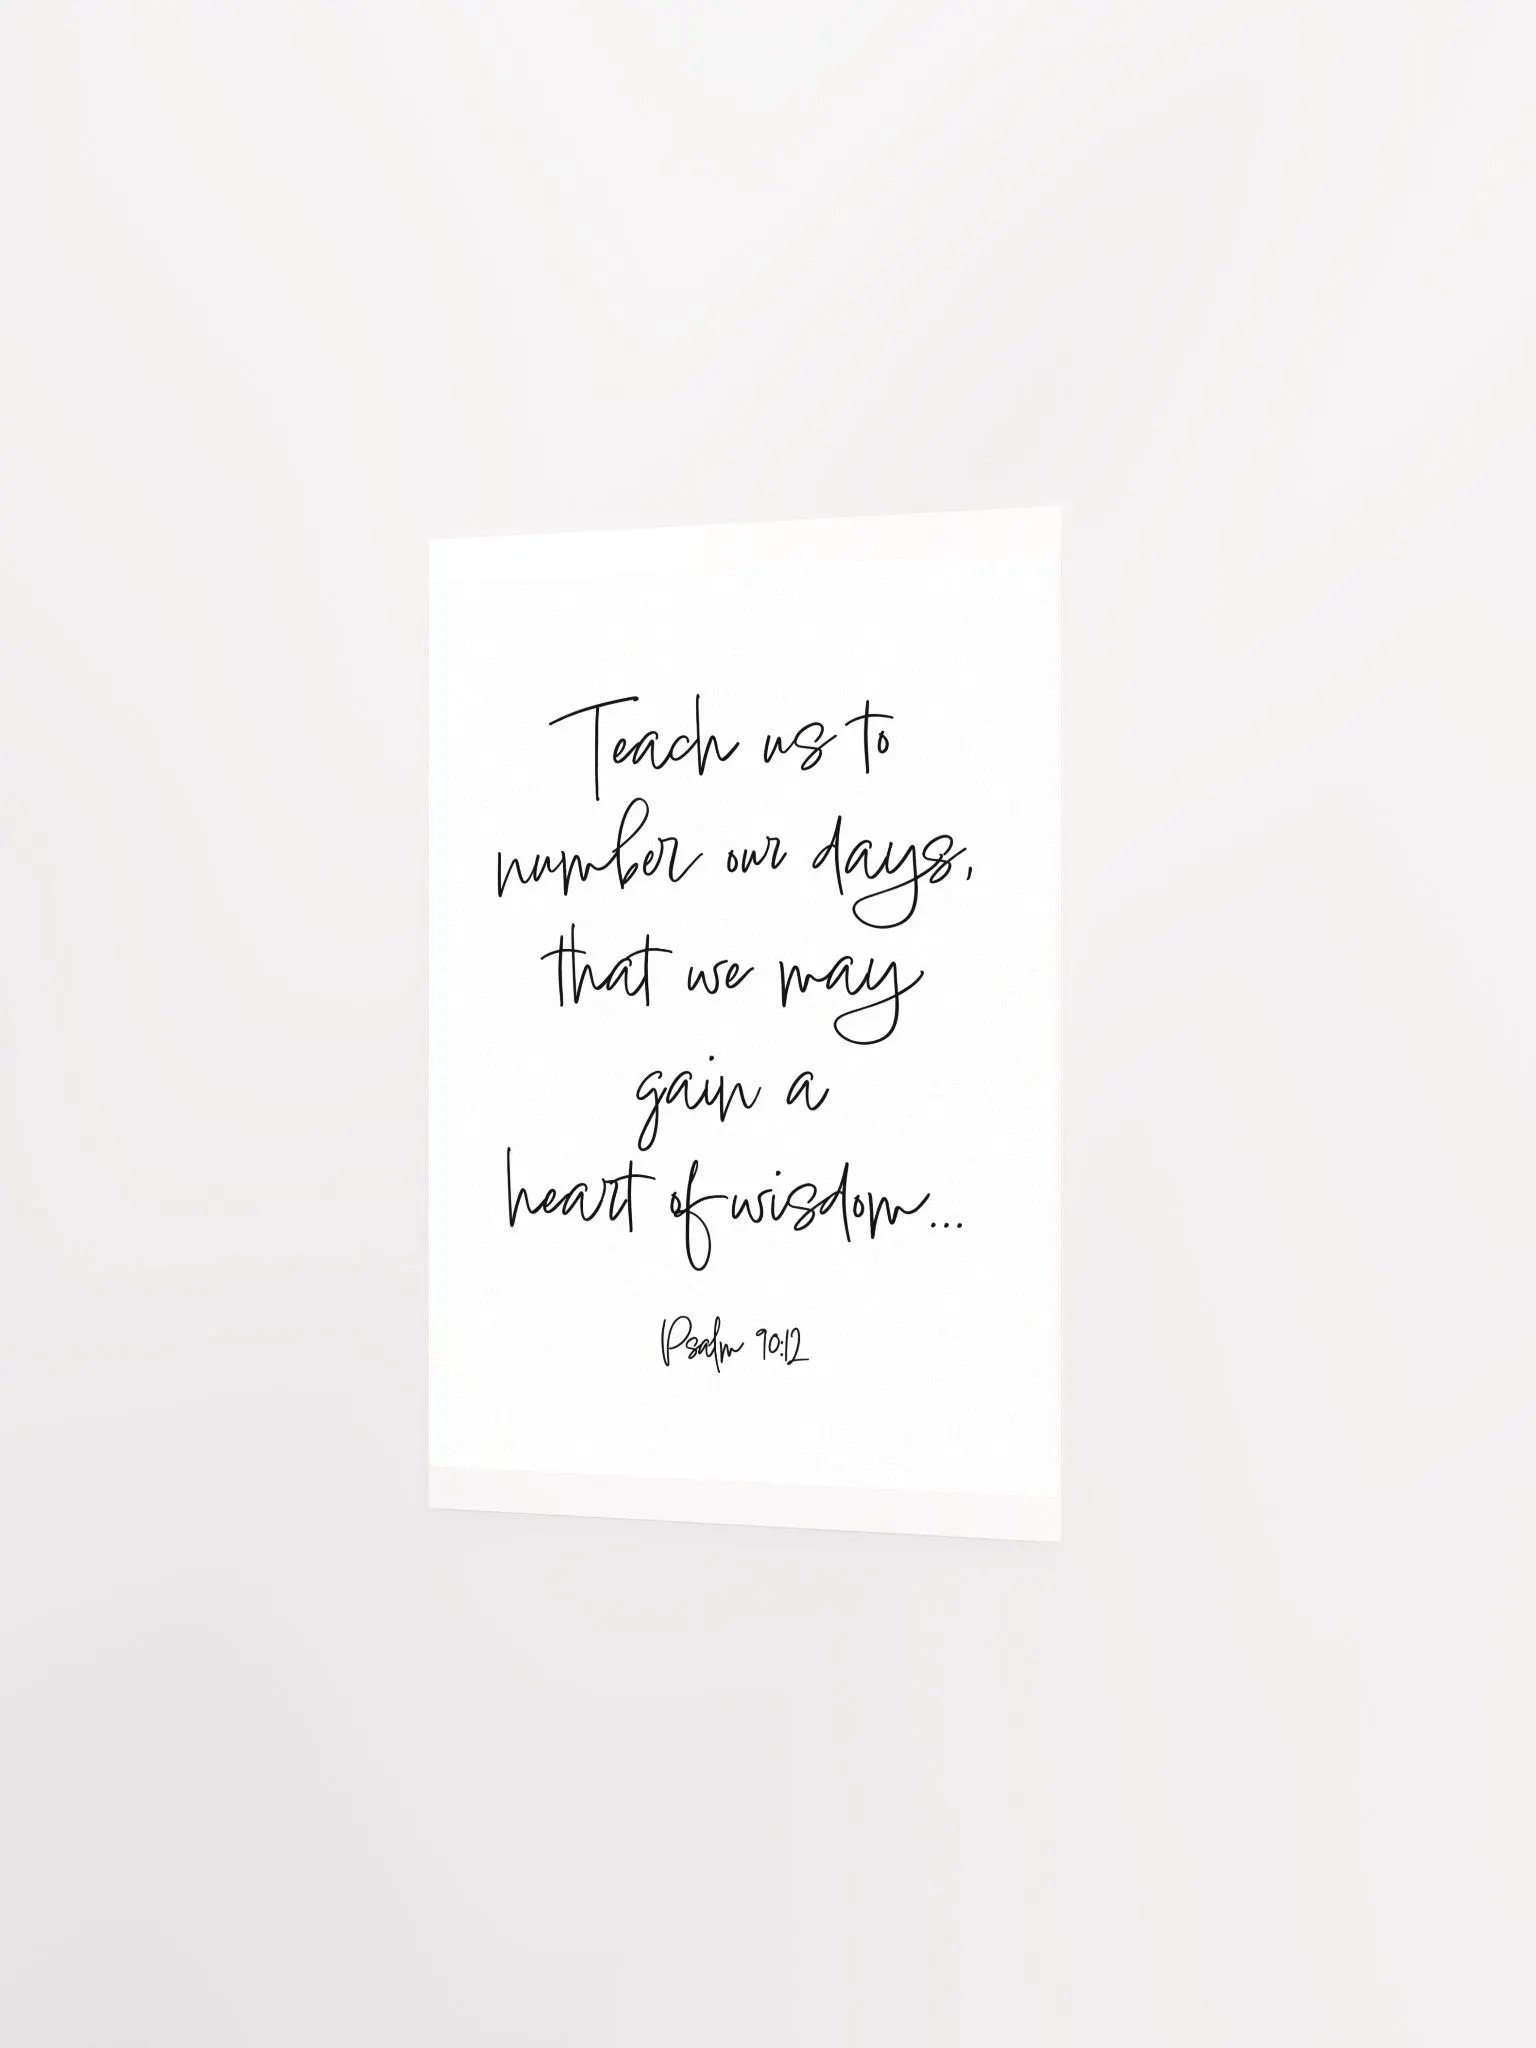 Teach us to
number our days,
that we may
gain a
heart of wisdom...
Psalm 90:12